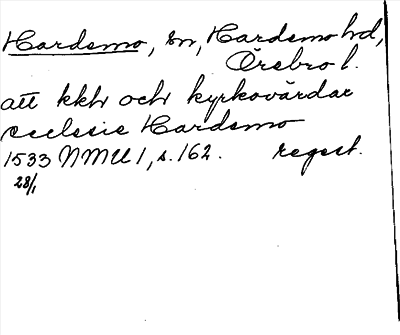 Hardemo, sn, Hardemo hd,
Örebro l.
att kkh och kyrkovärdar
ecclesie Hardemo
1533 NMU 1, s. 162. regest.
28/1